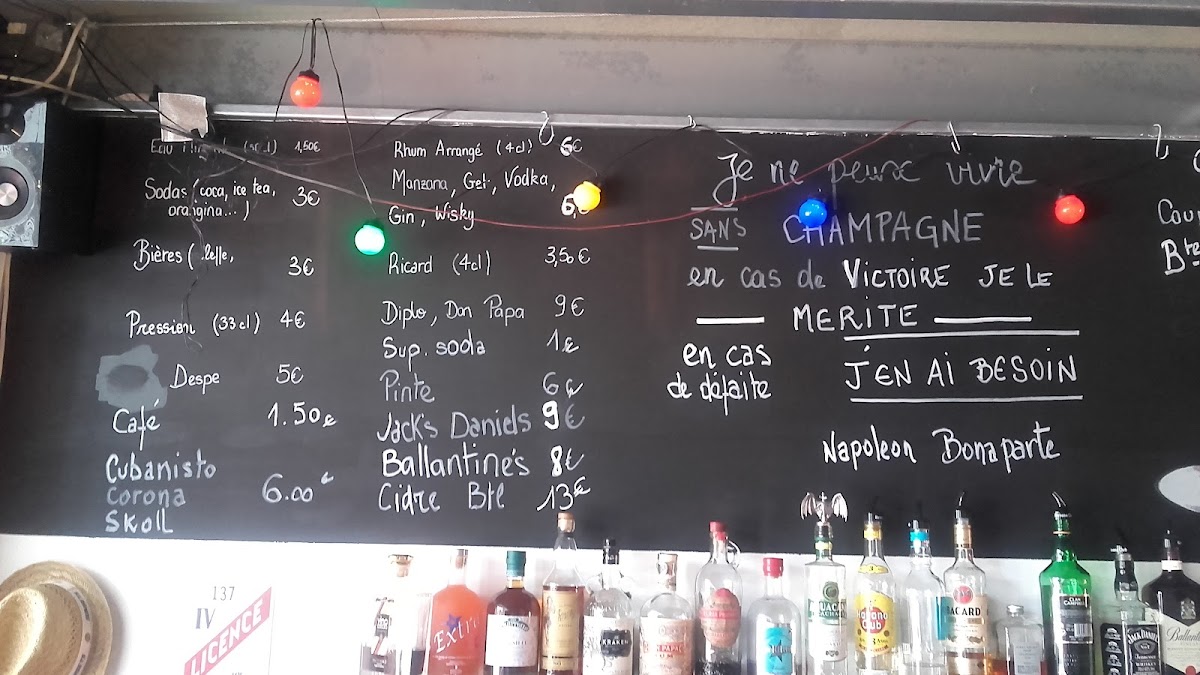 1,50€
Sodas (coca, ice tea, 3€
orangina...)
Bières ( 3€
Pression (33cl) 4€
Despe 5€
Café 1.50€
Cubanisto
Corona 6.00€
SKOLL
Rhum Arrangé (4cl) 6€
Manzana, Get, Vodka,
Gin, Wisky
Ricard (4cl) 3,50€
Diplo, Don Papa 9€
Sup. soda 1€
Pinte 6€
Jack's Daniels 9€
Ballantine's 8€
Cidre Btl 13€
Je ne peux vivre
SANS CHAMPAGNE
en cas de VICTOIRE JE LE
MERITE
en cas
de défaite
J'EN AI BESOIN
Napoleon Bonaparte
Cou
Bte
137
IV
LICENCE
Extra
KRAKEN
Havana
Club
BACARDI
JACK DANIEL'S
Ballantine